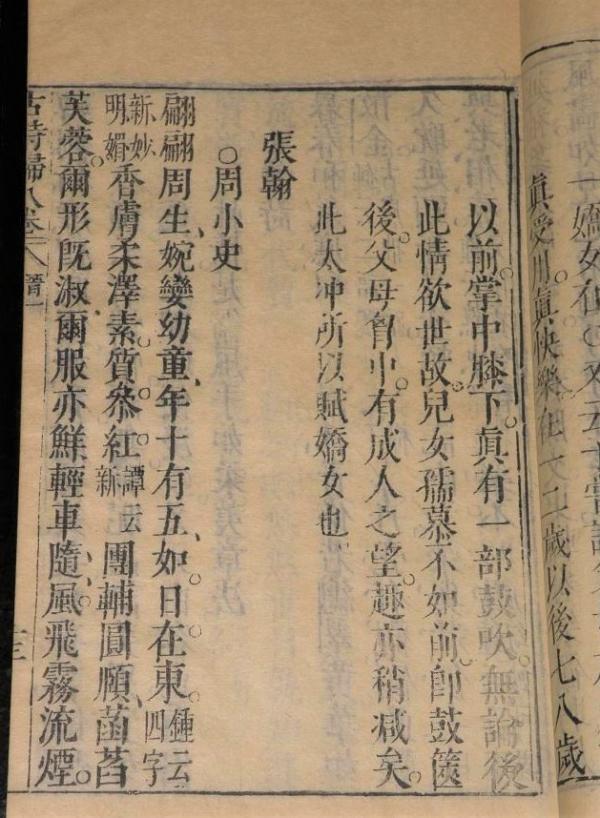 一嬌女在
眞受用。眞快樂在一二歲以後七八歲
以前。掌中膝下。眞有一部鼓吹無論後
此情欲世故。兒女孺慕不如前。卽鼓篋
後。父母胷中。有成人之望。趣亦稍减矣。
此太冲所以賦嬌女也
張翰
○周小史
翩翩周生、婉孌幼童、年十有五、如。日。在。東。鍾云四字
新妙明媚香膚柔澤素。質。叅。紅。譚云新團輔圓頤、菡萏
芙蓉。爾形旣淑爾服亦鮮輕車隨、風。飛霧流煙。
古詩歸八卷 晉一
十三